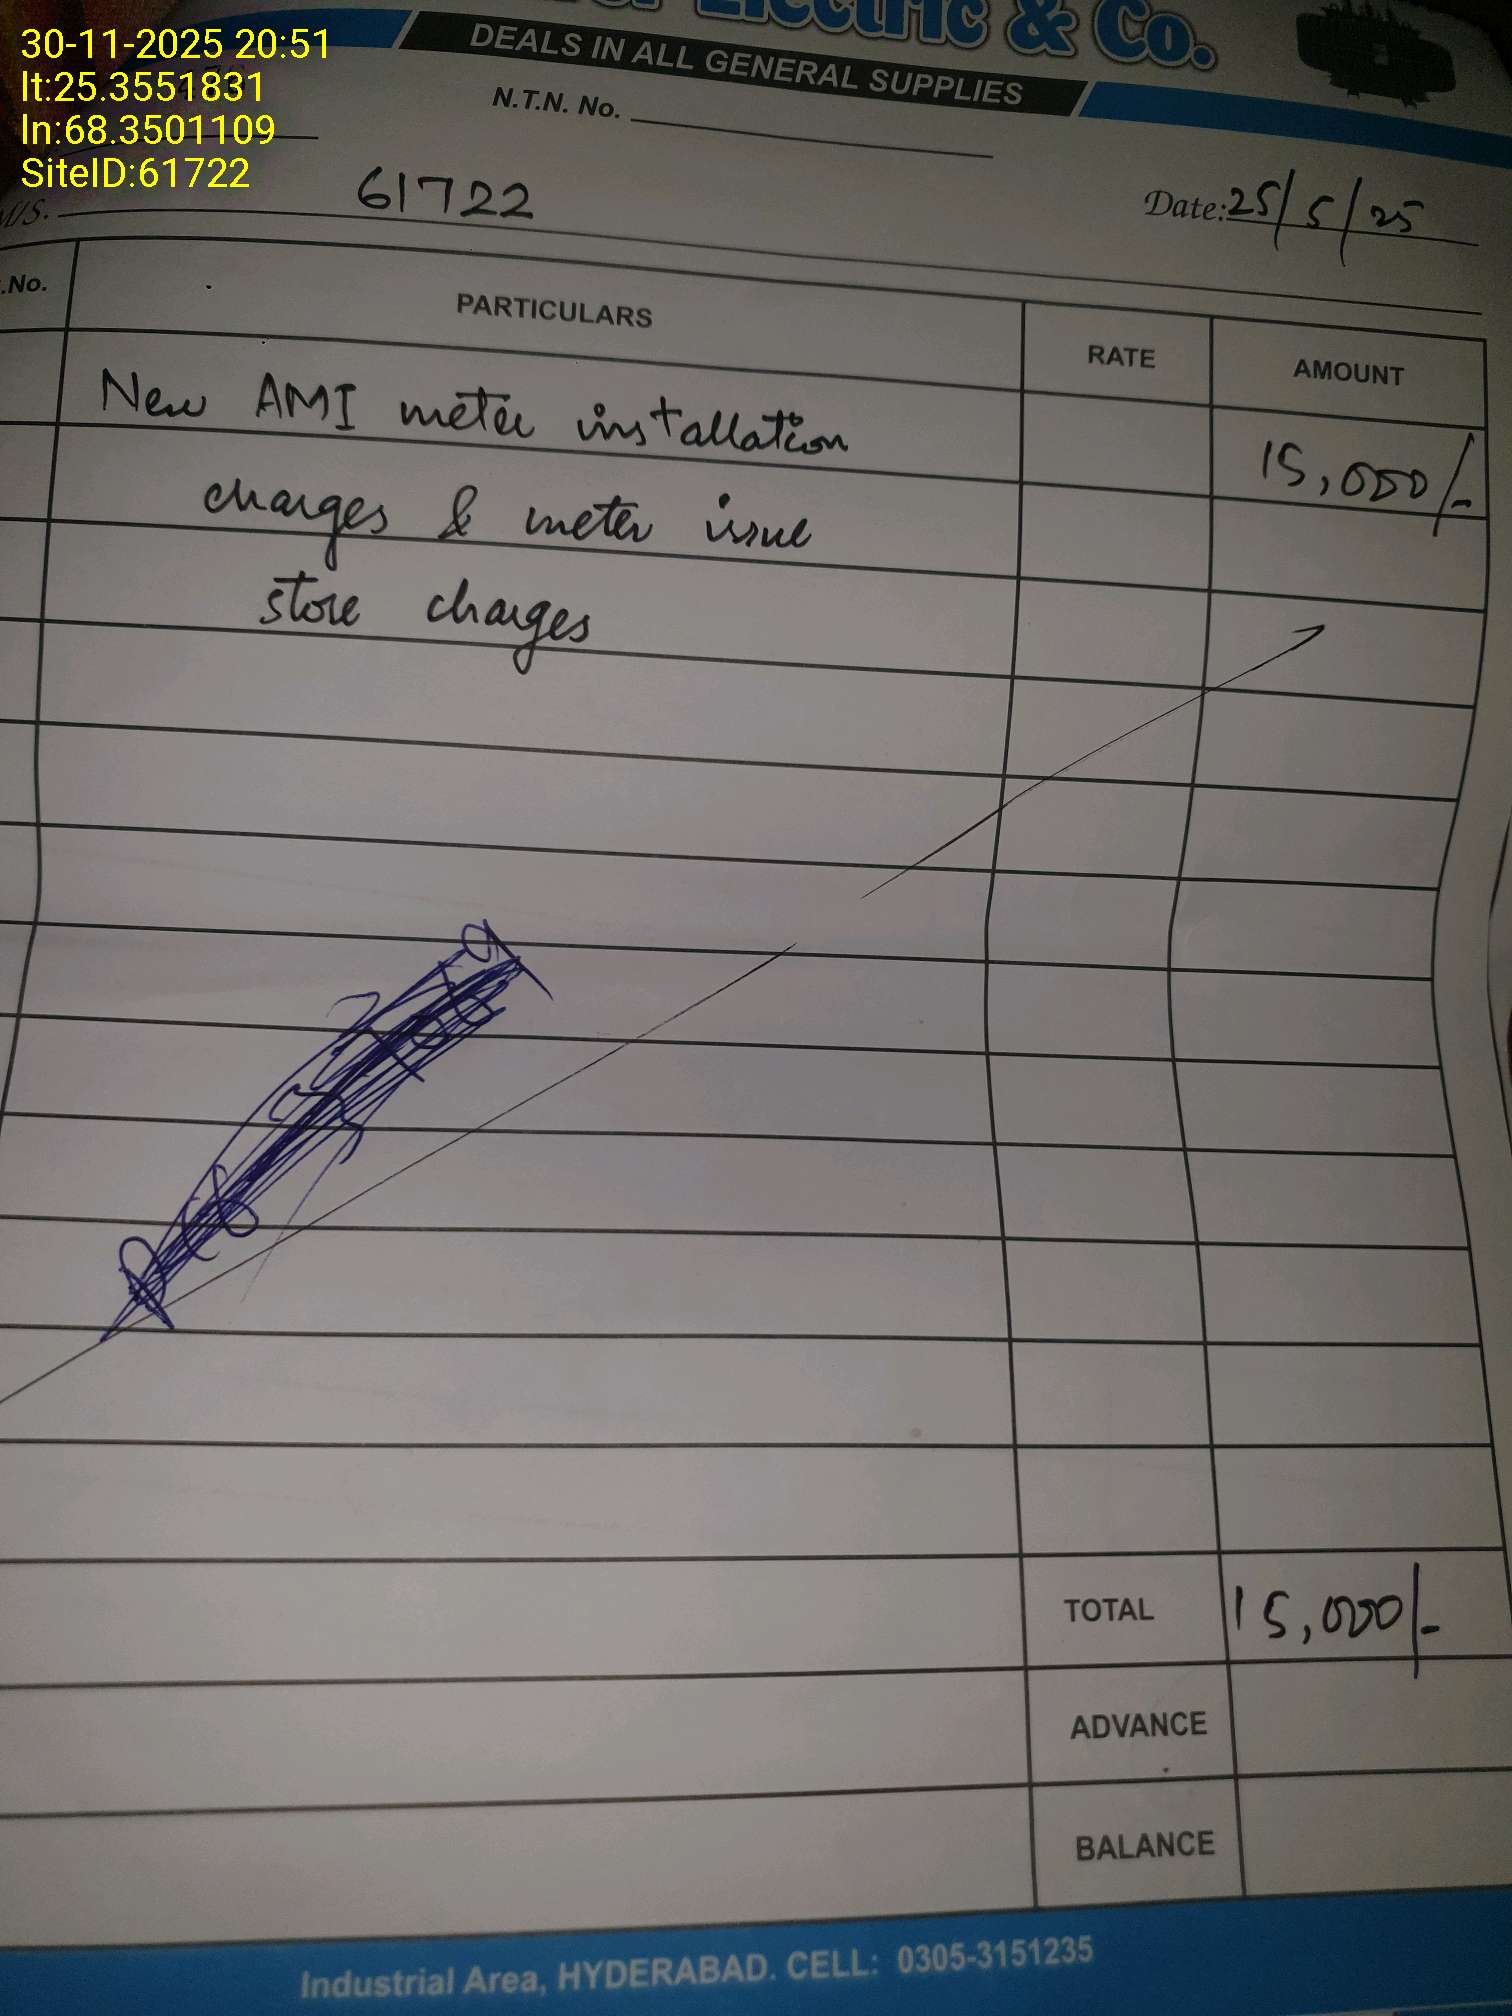 30-11-2025 20:51
lt:25.3551831
ln:68.3501109
SiteID:61722
Electric & Co.
DEALS IN ALL GENERAL SUPPLIES
N.T.N. No.
M/S. 61722
Date: 25/5/25
.No. PARTICULARS RATE AMOUNT
New AMI meter installation 15,000/-
charges & meter issue
store charges
TOTAL 15,000/-
ADVANCE
BALANCE
Industrial Area, HYDERABAD. CELL: 0305-3151235